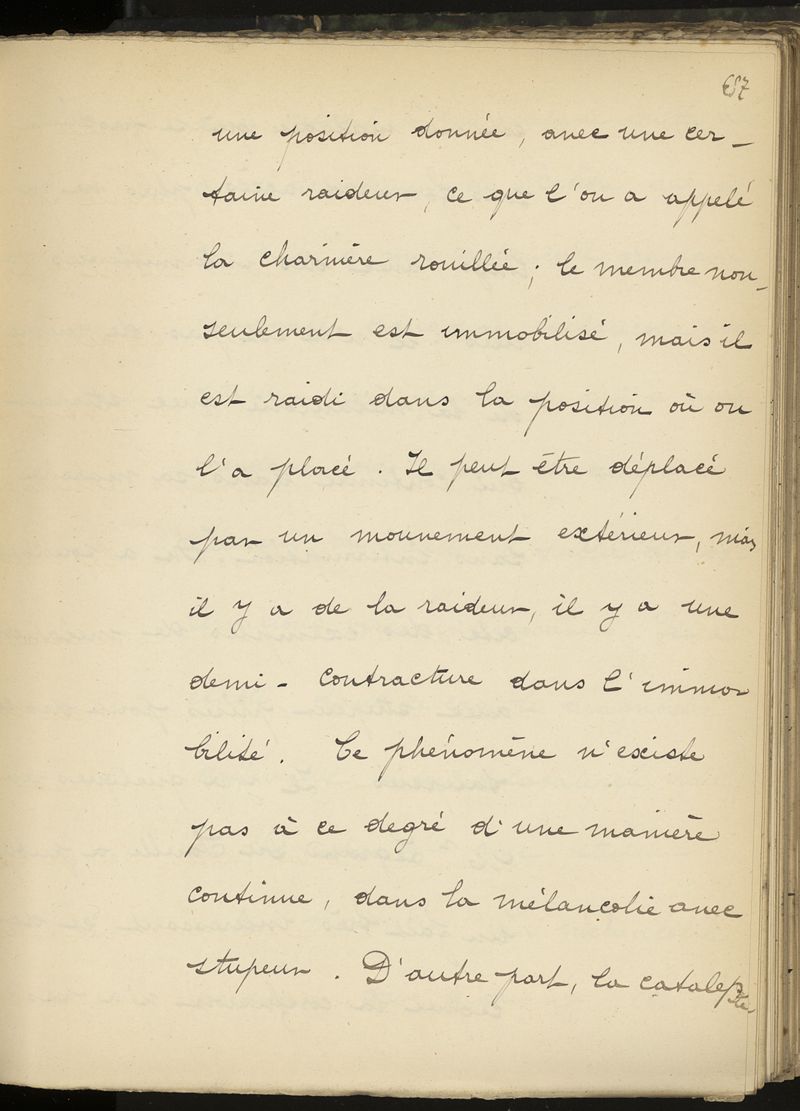 687
une position donnée, avec une cer-
taine raideur, ce que l'on a appelé
la charnière rouillée ; le membre non-
seulement est immobilisé, mais il
est raidi dans la position où on
l'a placé. Il peut être déplacé
par un mouvement extérieur, mais
il y a de la raideur, il y a une
demi-contracture dans l'immo-
bilité. Ce phénomène n'existe
pas à ce degré d'une manière
continue, dans la mélancolie avec
stupeur. D'autre part, la catalep-